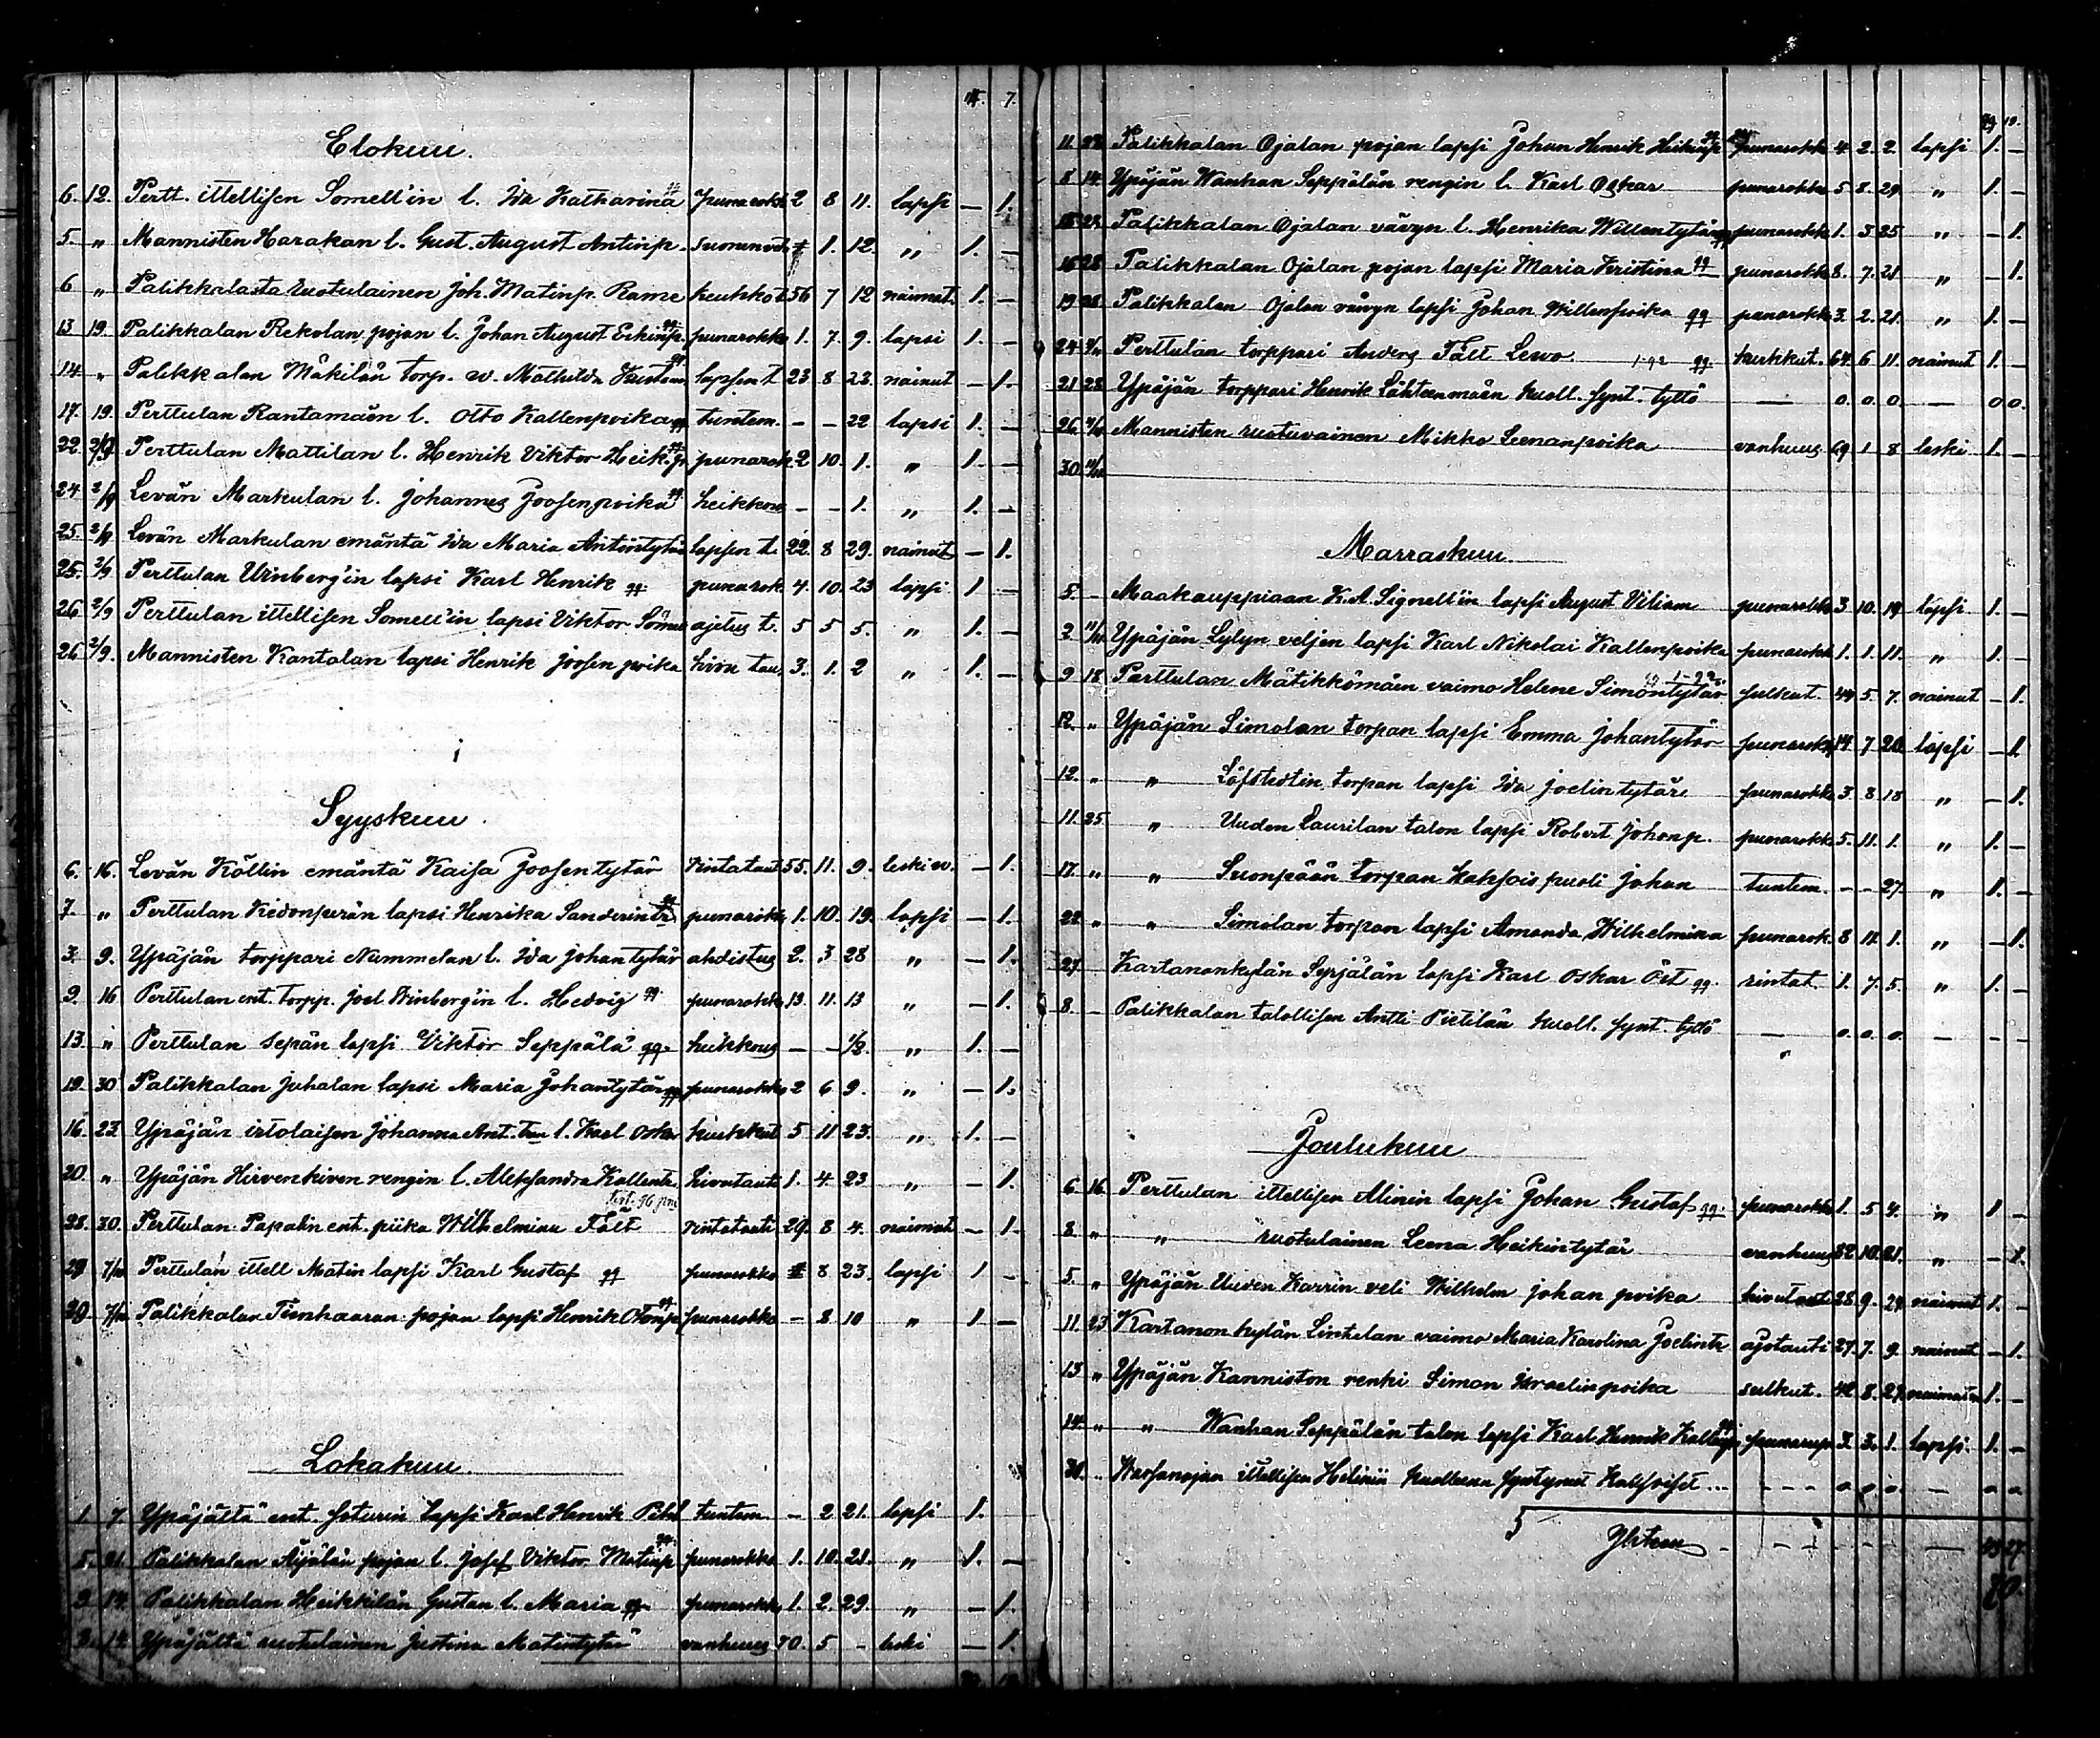 7.
Elokuu.
6. 12. Pertt. ittellisen Somell'in l. Ida Katharina punarokk 2 8 11. lapsi — 1.
5. „ Mannisten Harakan l. Gust. August Antinp. 1. 12. „ 1. —
6 „ Palikkalasta ruotulainen Joh. Matinp. Rame keuhkot 56 7 12 nainut. 1. —
13 19. Palikkalan Rekolan pojan l. Johan August Eskinp. punarokko 1. 7. 9. lapsi 1. —
14 „ Palikkalan Mäkilän torp. w. Mathilda Kustaan lapsen t 23 8 23. nainut — 1.
17. 19. Perttulan Rantamäen l. Otto Kallenpoika qq tuntem. — — 22 lapsi 1. —
22. 2/9 Perttulan Mattilan l. Henrik Viktor Heik. p. punarok 2 10. 1. „ 1. —
24 2/9 Levän Markulan l. Johannes Joosenpoika qq heikkous — — 1. „ 1. —
25. 2/9 Levän Markulan emäntä Ida Maria Antintytär lapsen t. 22. 8 29. nainut — 1.
25. 2/9 Perttulan Winberg'in lapsi Karl Henrik qq punarok. 4. 10. 23 lapsi 1 —
26 2/9 Perttulan ittellisen Somell'in lapsi Viktor ajetus t. 5 5 5. „ 1. —
26 2/9. Mannisten Kantolan lapsi Henrik Joosen poika hivu tau. 3. 1. 2 „ 1. —
Syyskuu.
6. 16. Levän Köllin emäntä Kaisa Joosentytär rintataut 55. 11. 9. leski w. — 1.
7. „ Perttulan Kedonperän lapsi Henrika Sanderintr. punarokko 1. 10. 19. lapsi — 1.
3. 9. Ypäjän torppari Nummelan l. Ida Johantytär ahdistus 2. 3 28 „ — 1.
9. 16 Perttulan ent. torpp. Joel Winberg'in l. Hedvig qq. punarokko 13. 11. 13 „ — 1.
13. „ Perttulan sepän lapsi Viktor Seppälä qq. heikkous — — 1/2. „ 1. —
19. 30 Palikkalan Juhalan lapsi Maria Johantytär qq punarokko 2 6 9. „ — 1.
16. 23. Ypäjän irtolaisen Johanna Ant. tren l. Karl Oskar kurkkut 5 11 23. „ 1. —
20. „ Ypäjän Hirvenkiven rengin l. Aleksandra Kallentr. hivutauti 1. 4 23 „ — 1.
28. 30. Perttulan Papalin ent. piika Wilhelmina Fält rintatauti 29. 8 4. naimat — 1.
29 7/10 Perttulan ittell Matin lapsi Karl Gustaf qq punarokko 8 23. lapsi 1 —
29. 7/10 Palikkalan Tiinhaaran pojan lapsi Henrik Otonp. punarokko — 8 10 „ 1 —
Lokakuu.
1. 7. Ypäjältä ent. soturin lapsi Karl Henrik tuntem — 2 21. lapsi 1.
5. 21. Palikkalan Äijälän pojan l. Josef Viktor Matinp punarokko 1. 10. 21. „ 1. —
9 14. Palikkalan Heikkilän Gustan l. Maria qq punarokko 1. 2. 29. „ — 1.
14. Ypäjältä ruotulainen Justina Matintytär vanhuus 70. 5 — leski — 1.
11. 22 Palikkalan Ojalan pojan lapsi Johan Henrik Heikinp. punarokko 4 2. 2. lapsi 1. —
8 14. Ypäjän Wanhan Seppälän rengin l. Karl Oskar punarokko 5 8. 29 „ 1. —
Palikkalan Ojalan vävyn l. Henrika Willentytär punarokko 1. 3 25 „ — 1.
Palikkalan Ojalan pojan lapsi Maria Kristina qq punarokko 8. 7. 21 „ — 1.
19 28 Palikkalan Ojalan vävyn lapsi Johan Willenpoika qq punarokko 3. 2. 21. „ 1. —
24 Perttulan torppari Anders Fält Lewo qq. kurkkut. 64. 6 11. nainut 1. —
21 28 Ypäjän torppari Henrik Lähteenmäen kuoll. synt. tyttö — 0. 0. 0. — 0 0.
26. Mannisten ruotuvainen Mikko Leenanpoika vanhuus 69 1 8 leski 1. —
30
Marraskuu.
5. — Maakauppiaan K. A. Signell'in lapsi August Viliam punarokko 3 10. 19 lapsi 1. —
2 Ypäjän Lylyn veljen lapsi Karl Nikolai Kallenpoika punarokk 1. 1. 11. „ 1. —
9 18 Perttulan Mätikkömäen vaimo Helene Simontytär 44 5 7. nainut — 1.
12. „ Ypäjän Simolan torpan lapsi Emma Johantytär punarokk 14 7 26 lapsi — 1.
12. „ „ Löfstedtin torpan lapsi Ida Joelintytär punarokko 3 8 18 „ — 1.
11. 25 „ Uuden Laurilan talon lapsi Robert Johanp. punarokko 5. 11. 1. „ 1. —
17. „ „ Suonpään torpan kaksois puoli Johan tuntem. — — 27. „ 1. —
22 „ „ Simolan torpan lapsi Amanda Wilhelmina punarok. 8 11. 1. „ — 1.
27. Kartanonkylän Syrjälän lapsi Karl Oskar Öst qq. rintat. 1. 7. 5. „ 1. —
8. — Palikkalan talollisen Antti Pietilän kuoll. synt. tyttö — 0. 0. 0. — — —
Joulukuu
6 16 Perttulan ittellisen Alinin lapsi Johan Gustaf qq. punarokko 1. 5 4. „ 1 —
8. „ „ ruotulainen Leena Heikintytär vanhuus 82 10. 21. „ — 1.
5. „ Ypäjän Uuden Karrin veli Wilhelm Johan poika hivutauti 28 9. 29 nainut 1. —
11. 23 Kartanon kylän Sintelan vaimo Maria Karolina Joelintr ajotauti 27. 7. 9. nainut — 1.
13 „ Ypäjän Kanniston renki Simon Israelinpoika 42. 8. 29. 1. —
14. „ „ Wanhan Seppälän talon lapsi Karl Henrik Kallenp. 3 3. 1. lapsi. 1. —
ittellisen Helinin kuolleena syntyneet kaksoiset ... — — — 0. 0. 0. — 0 0
Yhteen